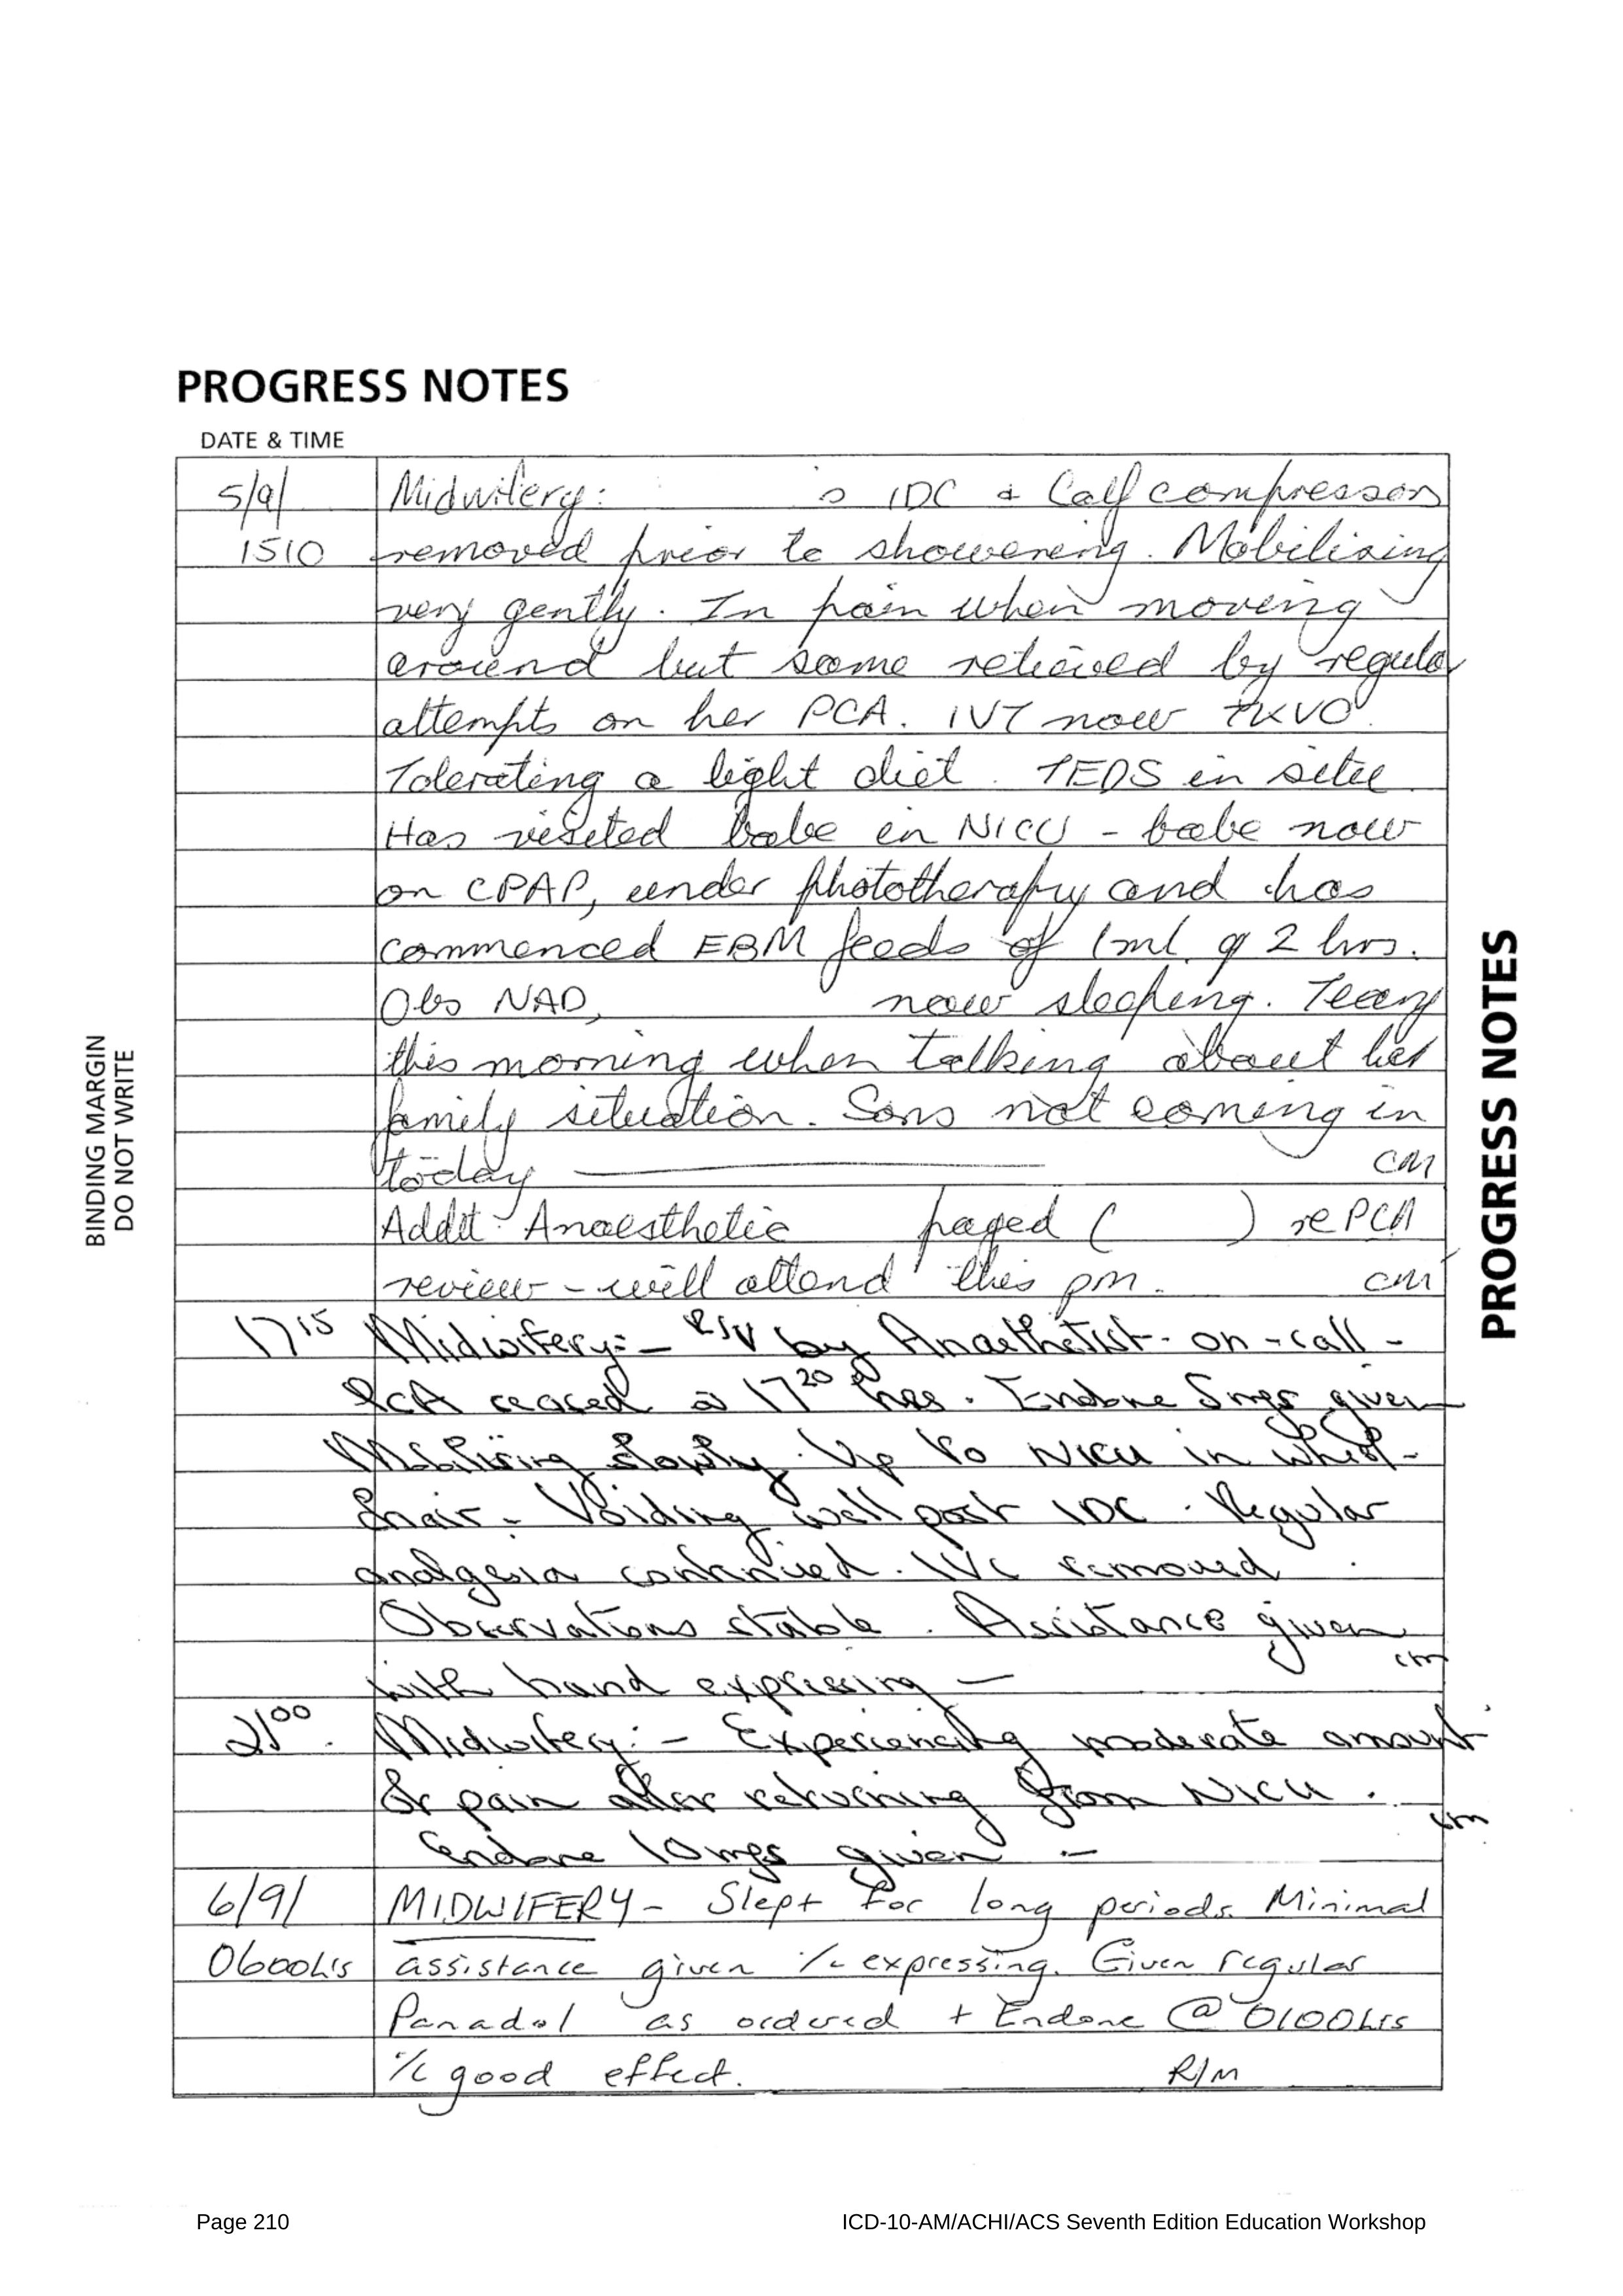 PROGRESS NOTES
DATE & TIME
5/9/ Midwifery: s IDC & Calf compressors
1510 removed prior to showering. Mobilising
very gently. In pain when moving
around but some relieved by regular
attempts on her PCA. IVT now TKVO.
Tolerating a light diet. TEDS in situ
Has visited babe in NICU - babe now
on CPAP, under phototherapy and has
commenced EBM feeds of 1ml q 2 hrs.
Obs NAD, now sleeping. Teary
this morning when talking about her
family situation. Sons not coming in
today CM
Addit: Anaesthetic paged ( ) re PCA
review - will attend this pm. CM
17 15 Midwifery:- R/V by Anaethetist-on-call-
PCA ceased @ 17 20 hrs. Endone 5mgs given
Mobilising slowly. Up to NICU in wheel-
chair. Voiding well post IDC. Regular
analgesia continued. IVC removed
Observations stable. Assistance given
with hand expressing - CM
21 00. Midwifery:- Experiencing moderate amount
of pain after returning from NICU.
Endone 10mgs given - CM
6/9/ MIDWIFERY - Slept for long periods. Minimal
0600hrs assistance given c̄ expressing. Given regular
Panadol as ordered + Endone @ 0100hrs
c̄ good effect. R/M
BINDING MARGIN
DO NOT WRITE
PROGRESS NOTES
Page 210 ICD-10-AM/ACHI/ACS Seventh Edition Education Workshop